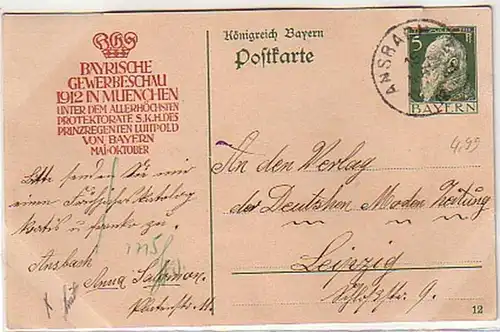 BAYRISCHE
GEWERBESCHAU
1912 IN MUENCHEN
UNTER DEM ALLERHÖCHSTEN
PROTEKTORATE S.K.H.DES
PRINZREGENTEN LUITPOLD
VON BAYERN
MAI-OKTOBER
Königreich Bayern
Postkarte
ANSBACH
5 Pf
BAYERN
4,99
Bitte senden Sie mir
einen Katalog
gratis und franko zu.
Ansbach
Anna
An den Verlag
der Deutschen Moden Zeitung
Leipzig
9.
12